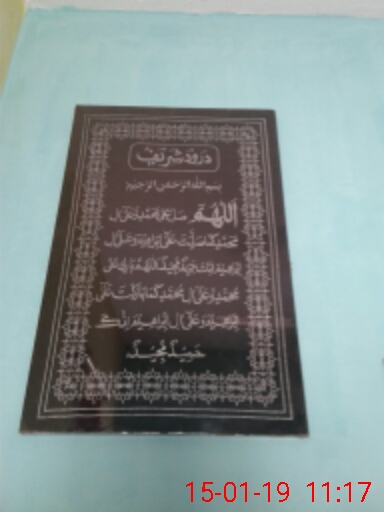 درود شریف
بسم الله الرحمن الرحیم
اللهم صل علی محمد و علی ال
محمد کما صلیت علی ابراهیم و علی ال
ابراهیم انک حمید مجید اللهم بارک علی
محمد و علی ال محمد کما بارکت علی
ابراهیم و علی ال ابراهیم انک
حمید مجید
15-01-19 11:17